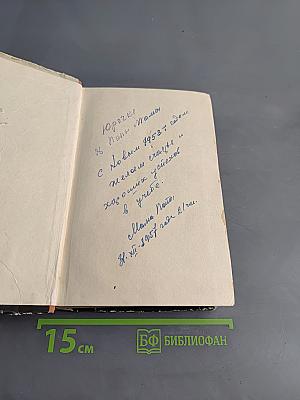 Юрочке
от Папы и Мамы
С Новым 1958-г годом
желаем счастья и
хороших успехов
в учебе.
Мама Папа.
31.XII.1957 года
15 см
БФ БИБЛИОФАН